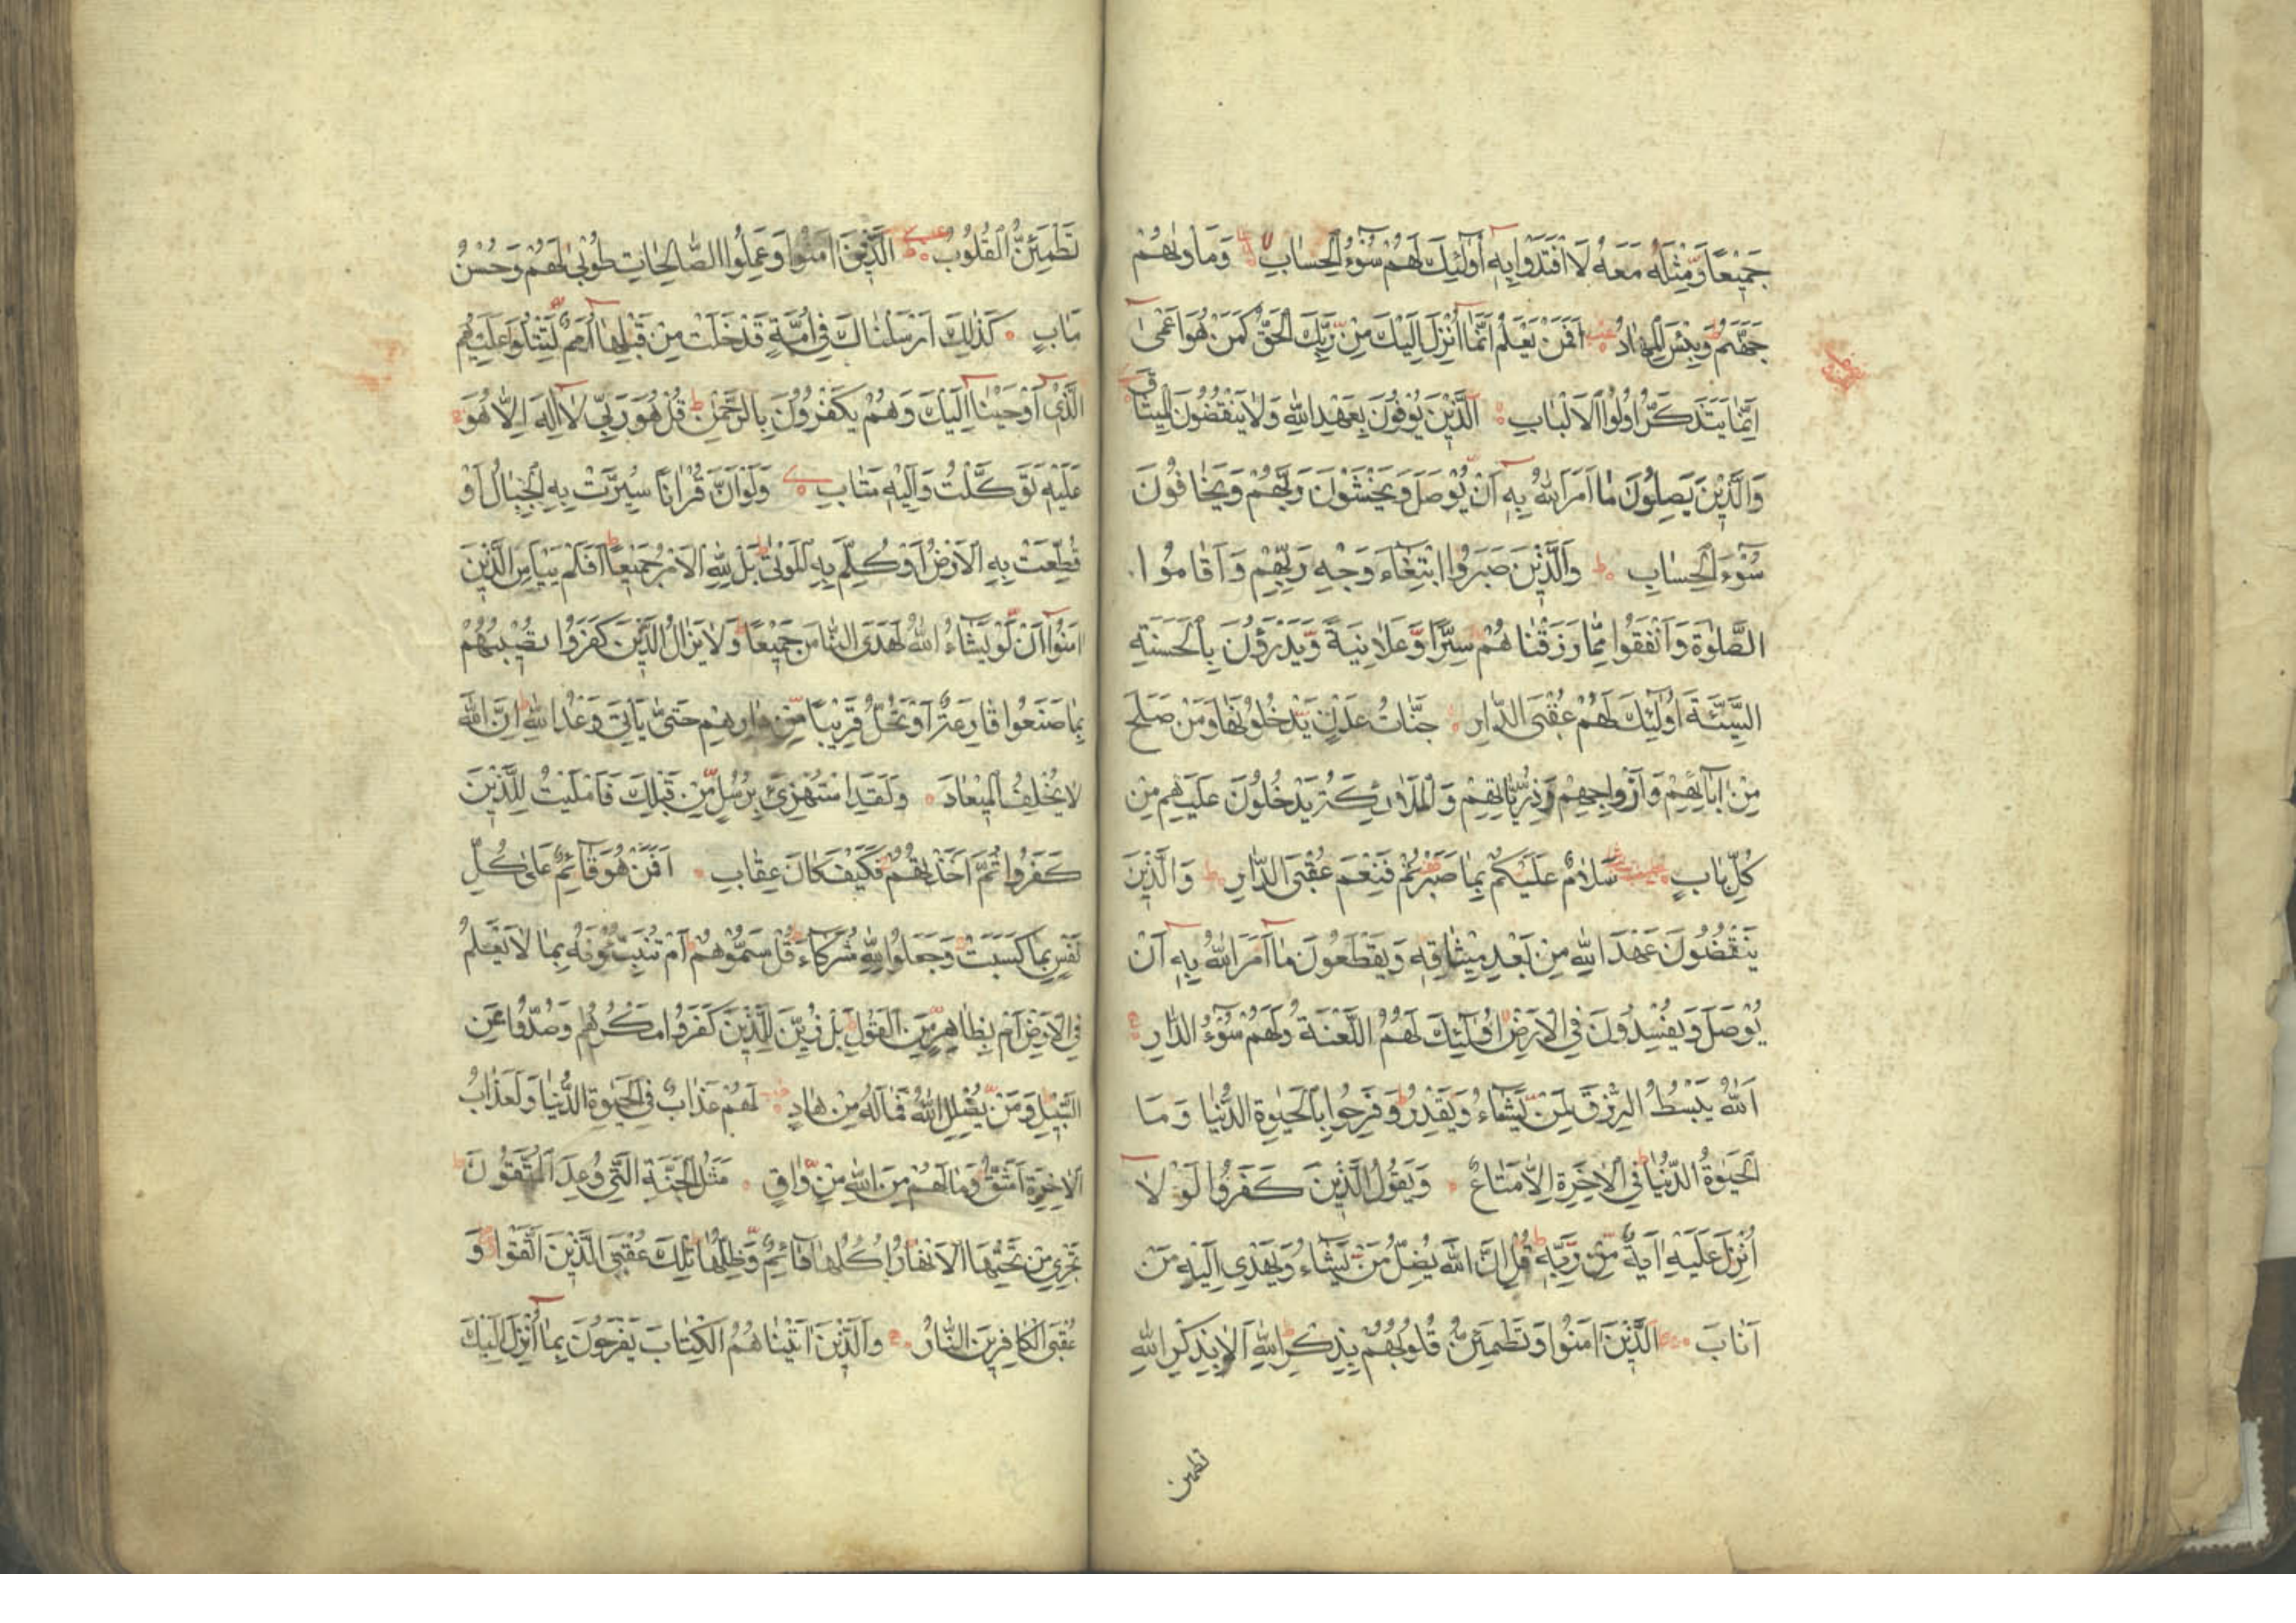 جَمِيْعًا وَّمِثْلَهُ مَعَهُ لَافْتَدَوْا بِهِ اُولٰئِكَ لَهُمْ سُوْءُ الْحِسَابِ وَمَاْوٰىهُمْ
جَهَنَّمُ وَبِئْسَ الْمِهَادُ اَفَمَنْ يَعْلَمُ اَنَّمَا اُنْزِلَ اِلَيْكَ مِنْ رَّبِّكَ الْحَقُّ كَمَنْ هُوَ اَعْمٰى
اِنَّمَا يَتَذَكَّرُ اُولُوا الْاَلْبَابِ اَلَّذِيْنَ يُوْفُوْنَ بِعَهْدِ اللّٰهِ وَلَا يَنْقُضُوْنَ الْمِيثَاقَ
وَالَّذِيْنَ يَصِلُوْنَ مَا اَمَرَ اللّٰهُ بِهِ اَنْ يُّوْصَلَ وَيَخْشَوْنَ رَبَّهُمْ وَيَخَافُوْنَ
سُوْءَ الْحِسَابِ وَالَّذِيْنَ صَبَرُوا ابْتِغَاءَ وَجْهِ رَبِّهِمْ وَاَقَامُوا
الصَّلٰوةَ وَاَنْفَقُوا مِمَّا رَزَقْنَاهُمْ سِرًّا وَّعَلَانِيَةً وَّيَدْرَؤُنَ بِالْحَسَنَةِ
السَّيِّئَةَ اُولٰئِكَ لَهُمْ عُقْبَى الدَّارِ جَنَّاتُ عَدْنٍ يَدْخُلُوْنَهَا وَمَنْ صَلَحَ
مِنْ اٰبَائِهِمْ وَاَزْوَاجِهِمْ وَذُرِّيَّاتِهِمْ وَالْمَلَائِكَةُ يَدْخُلُوْنَ عَلَيْهِمْ مِنْ
كُلِّ بَابٍ سَلَامٌ عَلَيْكُمْ بِمَا صَبَرْتُمْ فَنِعْمَ عُقْبَى الدَّارِ وَالَّذِيْنَ
يَنْقُضُوْنَ عَهْدَ اللّٰهِ مِنْ بَعْدِ مِيْثَاقِهِ وَيَقْطَعُوْنَ مَا اَمَرَ اللّٰهُ بِهِ اَنْ
يُّوْصَلَ وَيُفْسِدُوْنَ فِي الْاَرْضِ اُولٰئِكَ لَهُمُ اللَّعْنَةُ وَلَهُمْ سُوْءُ الدَّارِ
اَللّٰهُ يَبْسُطُ الرِّزْقَ لِمَنْ يَّشَاءُ وَيَقْدِرُ وَفَرِحُوا بِالْحَيٰوةِ الدُّنْيَا وَمَا
الْحَيٰوةُ الدُّنْيَا فِي الْاٰخِرَةِ اِلَّا مَتَاعٌ وَيَقُوْلُ الَّذِيْنَ كَفَرُوْا لَوْ لَا
اُنْزِلَ عَلَيْهِ اٰيَةٌ مِّنْ رَّبِّهِ قُلْ اِنَّ اللّٰهَ يُضِلُّ مَنْ يَّشَاءُ وَيَهْدِي اِلَيْهِ مَنْ
اَنَابَ اَلَّذِيْنَ اٰمَنُوْا وَتَطْمَئِنُّ قُلُوْبُهُمْ بِذِكْرِ اللّٰهِ اَلَا بِذِكْرِ اللّٰهِ
تطمئن
تَطْمَئِنُّ الْقُلُوْبُ اَلَّذِيْنَ اٰمَنُوْا وَعَمِلُوا الصَّالِحَاتِ طُوْبٰى لَهُمْ وَحُسْنُ
مَاٰبٍ كَذٰلِكَ اَرْسَلْنَاكَ فِي اُمَّةٍ قَدْ خَلَتْ مِنْ قَبْلِهَا اُمَمٌ لِّتَتْلُوَا عَلَيْهِمُ
الَّذِي اَوْحَيْنَا اِلَيْكَ وَهُمْ يَكْفُرُوْنَ بِالرَّحْمٰنِ قُلْ هُوَ رَبِّي لَا اِلٰهَ اِلَّا هُوَ
عَلَيْهِ تَوَكَّلْتُ وَاِلَيْهِ مَتَابِ وَلَوْ اَنَّ قُرْاٰنًا سُيِّرَتْ بِهِ الْجِبَالُ اَوْ
قُطِّعَتْ بِهِ الْاَرْضُ اَوْ كُلِّمَ بِهِ الْمَوْتٰى بَلْ لِلّٰهِ الْاَمْرُ جَمِيْعًا اَفَلَمْ يَيْاَسِ الَّذِيْنَ
اٰمَنُوْا اَنْ لَّوْ يَشَاءُ اللّٰهُ لَهَدَى النَّاسَ جَمِيْعًا وَلَا يَزَالُ الَّذِيْنَ كَفَرُوْا تُصِيْبُهُمْ
بِمَا صَنَعُوا قَارِعَةٌ اَوْ تَحُلُّ قَرِيْبًا مِّنْ دَارِهِمْ حَتّٰى يَاْتِيَ وَعْدُ اللّٰهِ اِنَّ اللّٰهَ
لَا يُخْلِفُ الْمِيْعَادَ وَلَقَدِ اسْتُهْزِئَ بِرُسُلٍ مِّنْ قَبْلِكَ فَاَمْلَيْتُ لِلَّذِيْنَ
كَفَرُوا ثُمَّ اَخَذْتُهُمْ فَكَيْفَ كَانَ عِقَابِ اَفَمَنْ هُوَ قَائِمٌ عَلٰى كُلِّ
نَفْسٍ بِمَا كَسَبَتْ وَجَعَلُوْا لِلّٰهِ شُرَكَاءَ قُلْ سَمُّوْهُمْ اَمْ تُنَبِّئُوْنَهُ بِمَا لَا يَعْلَمُ
فِي الْاَرْضِ اَمْ بِظَاهِرٍ مِّنَ الْقَوْلِ بَلْ زُيِّنَ لِلَّذِيْنَ كَفَرُوْا مَكْرُهُمْ وَصُدُّوْا عَنِ
السَّبِيْلِ وَمَنْ يُّضْلِلِ اللّٰهُ فَمَا لَهُ مِنْ هَادٍ لَهُمْ عَذَابٌ فِي الْحَيٰوةِ الدُّنْيَا وَلَعَذَابُ
الْاٰخِرَةِ اَشَقُّ وَمَا لَهُمْ مِنَ اللّٰهِ مِنْ وَّاقٍ مَثَلُ الْجَنَّةِ الَّتِي وُعِدَ الْمُتَّقُوْنَ
تَجْرِي مِنْ تَحْتِهَا الْاَنْهَارُ اُكُلُهَا دَائِمٌ وَّظِلُّهَا تِلْكَ عُقْبَى الَّذِيْنَ اتَّقَوْا وَ
عُقْبَى الْكَافِرِيْنَ النَّارُ وَالَّذِيْنَ اٰتَيْنَاهُمُ الْكِتَابَ يَفْرَحُوْنَ بِمَا اُنْزِلَ اِلَيْكَ